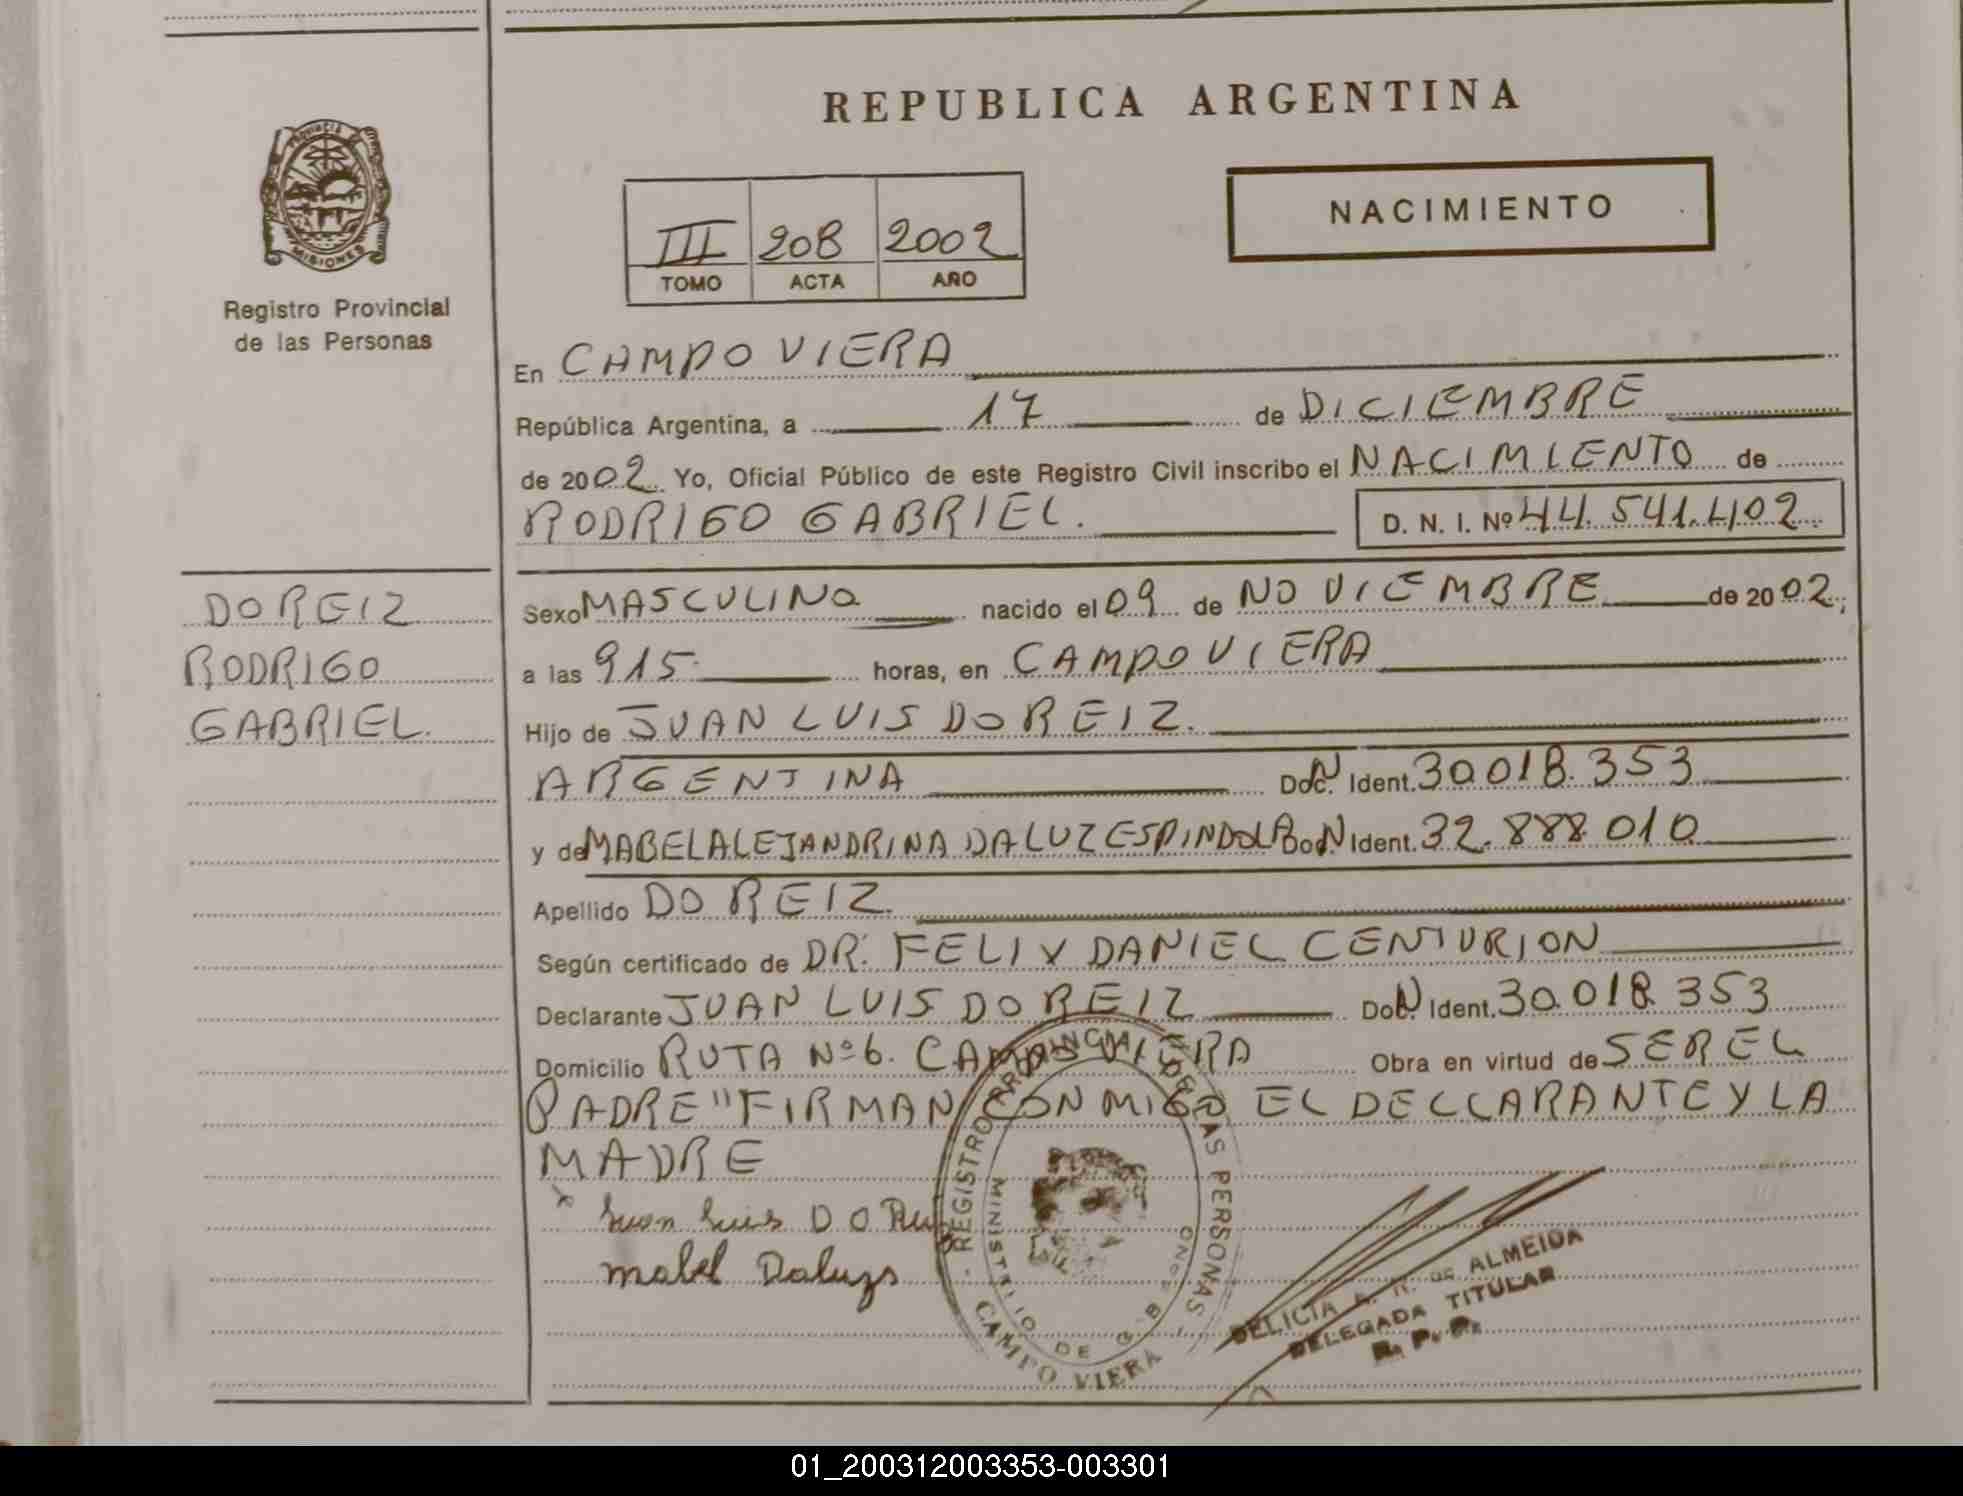 REPUBLICA ARGENTINA
PROVINCIA
MISIONES
Registro Provincial
de las Personas
III 208 2002
TOMO ACTA AÑO
NACIMIENTO
En CAMPO VIERA
República Argentina, a 17 de DICIEMBRE
de 2002 Yo, Oficial Público de este Registro Civil inscribo el NACIMIENTO de
RODRIGO GABRIEL. D. N. I. Nº 44.541.402
DO REIZ
RODRIGO
GABRIEL.
Sexo MASCULINO nacido el 09 de NOVIEMBRE de 2002;
a las 915 horas, en CAMPO VIERA
Hijo de JUAN LUIS DO REIZ.
ARGENTINA Doc. Ident. 30.018.353
y de MABEL ALEJANDRINA DALUZ ESPINDOLA Doc. Ident. 32.888.010
Apellido DO REIZ.
Según certificado de DR. FELIX DANIEL CENTURION
Declarante JUAN LUIS DO REIZ Doc. Ident. 30.018.353
Domicilio RUTA Nº 6. CAMPO VIERA Obra en virtud de SER EL
PADRE "FIRMAN CONMIGO EL DECLARANTE Y LA
MADRE
Juan Luis DO
mabel Daluzs
REGISTRO PROVINCIAL DE LAS PERSONAS
MINISTERIO DE
CAMPO VIERA
DELICIA DE ALMEIDA
DELEGADA TITULAR
R. P. P.
01_200312003353-003301